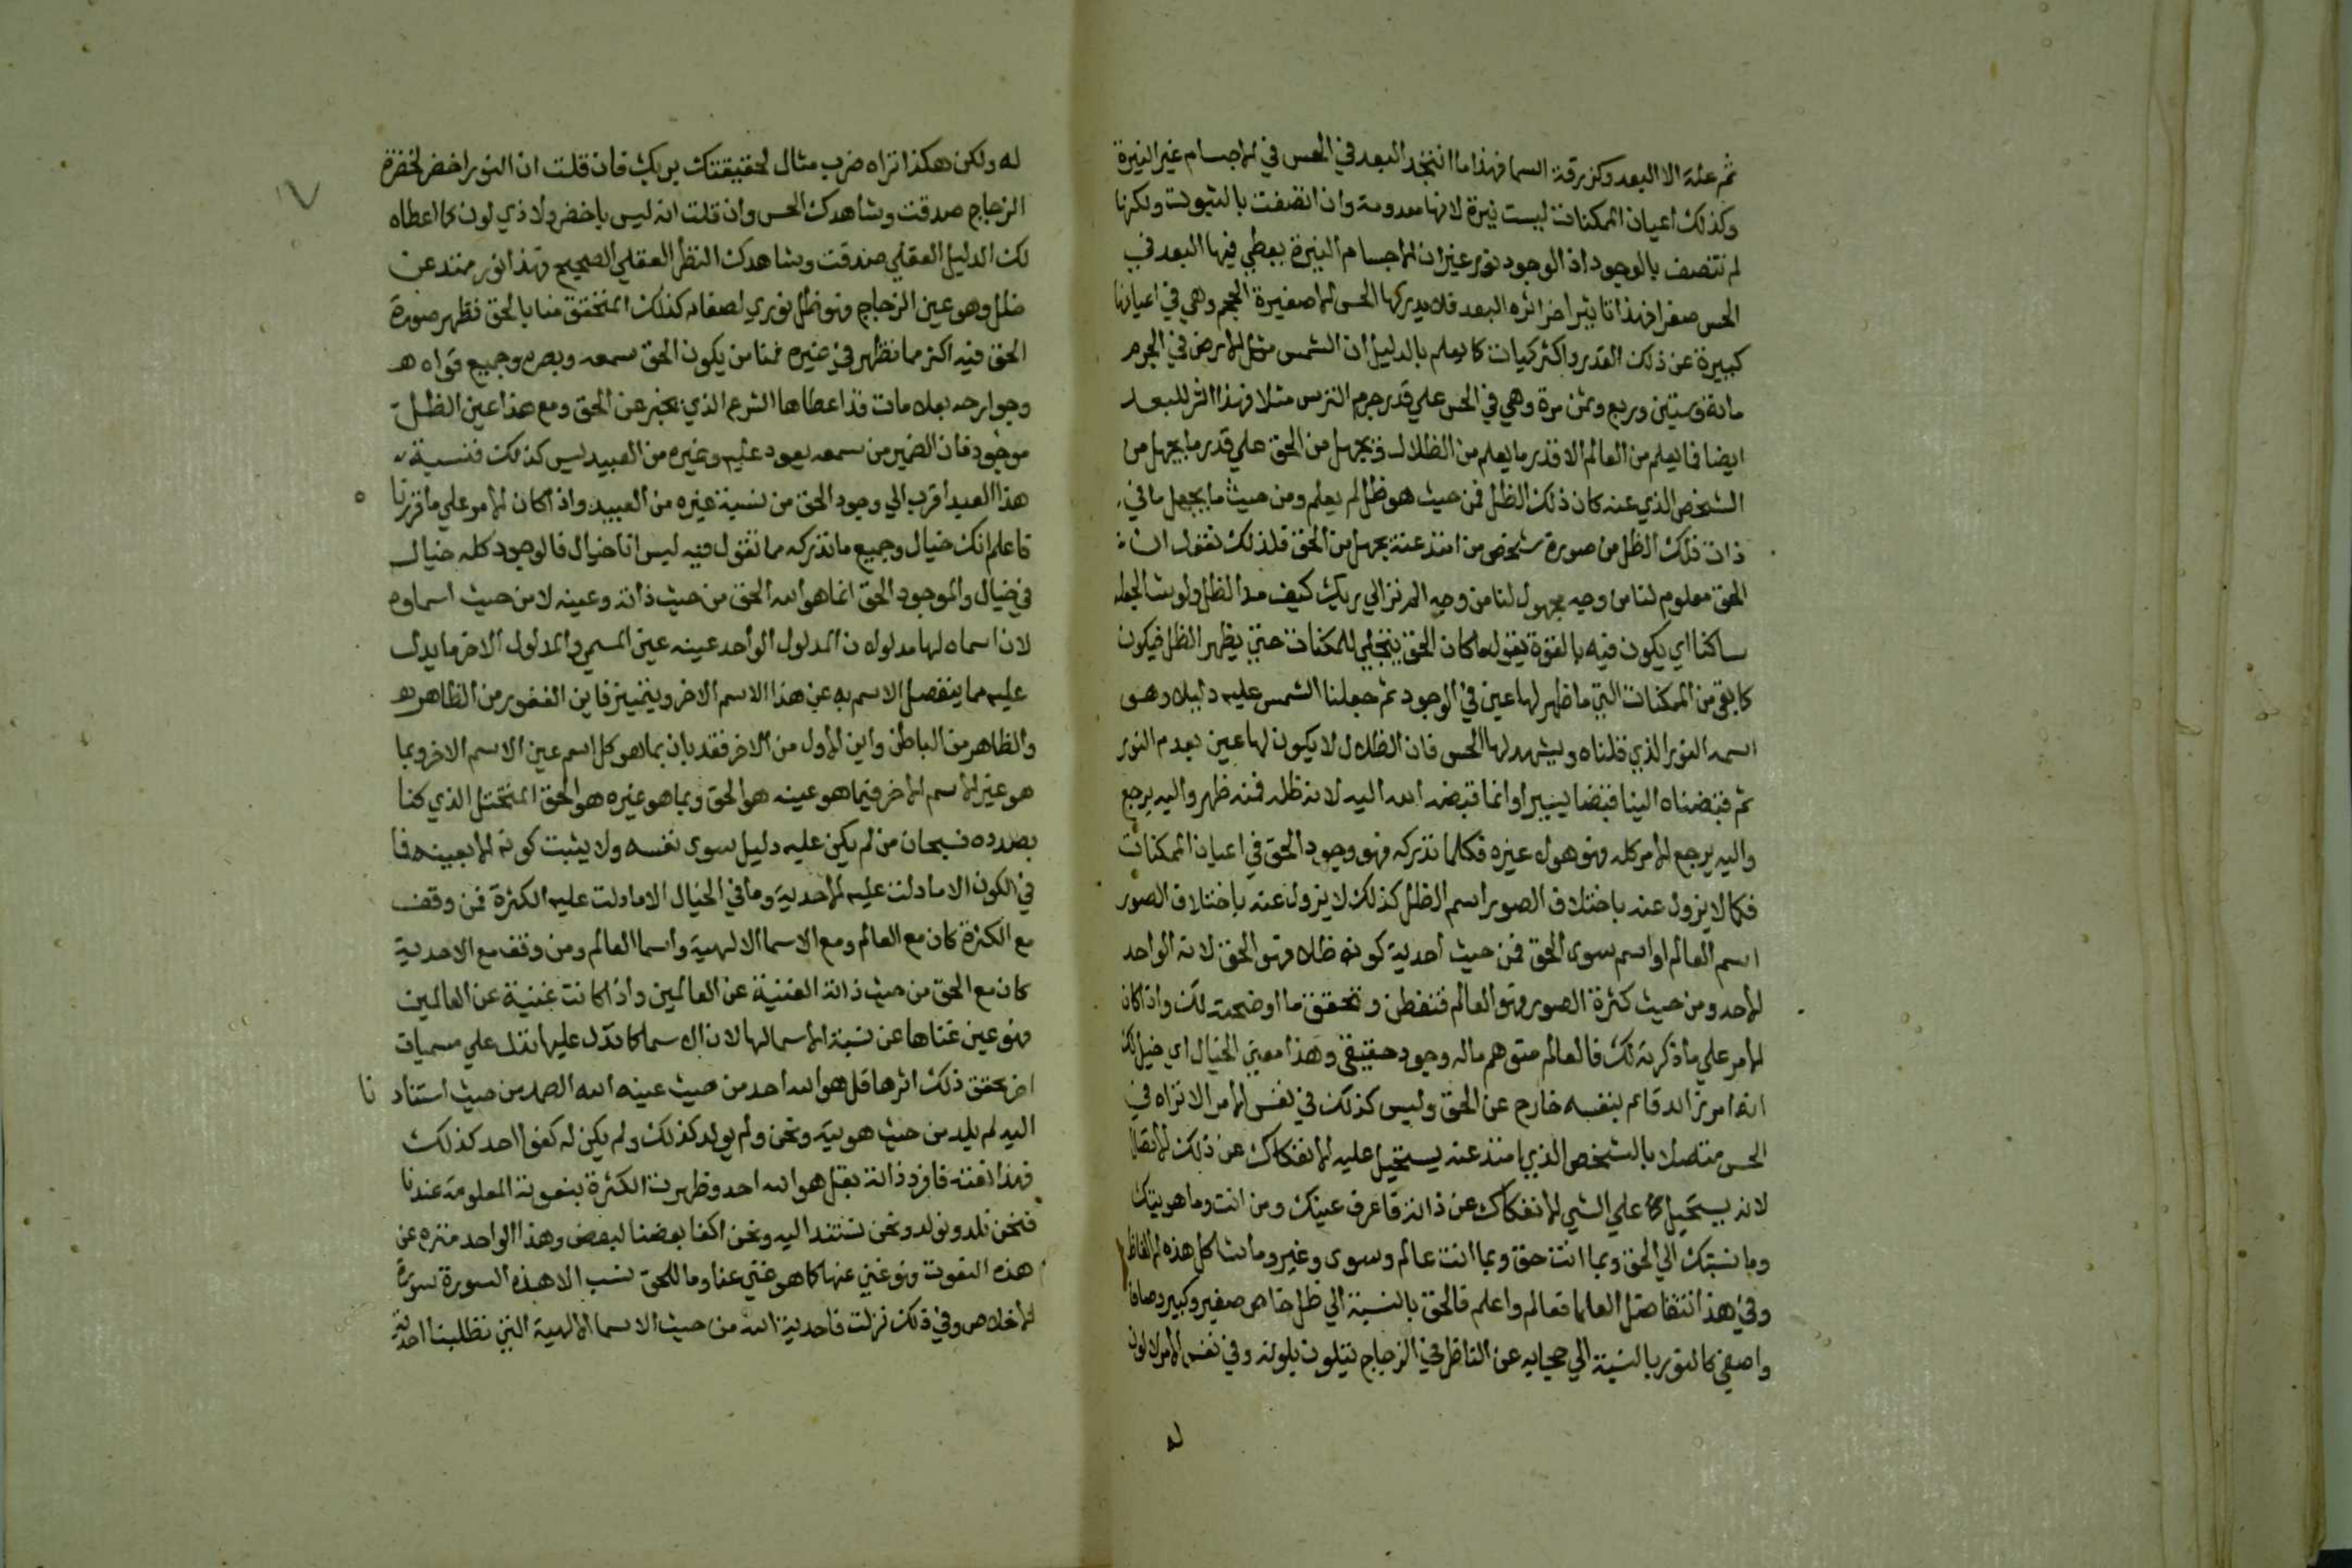 ثم علة الا البعد وكزرقة السما فهذا ما انتجه البعد في الحس في الاجسام غير النيرة
وكذلك اعيان الممكنات ليست نيرة لانها معدومة وان اتصفت بالثبوت ولكنها
لم تتصف بالوجود اذ الوجود نور غير ان الاجسام النيرة يعطي فيها البعد في
الحس صغرا فهذا تاثير اخر اثره البعد فلا يدركها الحس الا صغيرة الحجم وهي في اعيانها
كبيرة عن ذلك القدر واكثر كميات كما يعلم بالدليل ان الشمس مثل الارض في الجرم
ماية وستين وربع وثمن مرة وهي في الحس علي قدر جرم الترس مثلا فهذا اثر للبعد
ايضا فما يعلم من العالم الا قدر ما يعلم من الظلال ويجهل من الحق علي قدر ما يجهل من
الشخص الذي عنه كان ذلك الظل فمن حيث هو ظل له يعلم ومن حيث ما يجهل ما في
ذات ذلك الظل من صورة شخص من امتد عنه يجهل من الحق فلذلك نقول ان
الحق معلوم لنا من وجه مجهول لنا من وجه الم تر الي ربك كيف مد الظل ولو شا لجعله
ساكنا اي يكون فيه بالقوة يقول ما كان الحق يتجلي للممكنات حتي يظهر الظل فيكون
كما بقي من الممكنات التي ما ظهر لها عين في الوجود ثم جعلنا الشمس عليه دليلا وهو
اسمه النور الذي قلناه ويشهد لها الحس فان الظلال لا يكون لها عين بعدم النور
ثم قبضناه الينا قبضا يسيرا وانما قبضه الله اليه لانه ظله فمنه ظهر واليه يرجع
واليه يرجع الامر كله فهو هو لا غيره فكلما تدركه فهو وجود الحق في اعيان الممكنات
فكما لا يزول عنه باختلاف الصور اسم الظل كذلك لا يزول عنه باختلاف الصور
اسم العالم او اسم سوي الحق فمن حيث احدية كونه ظلا فهو الحق لانه الواحد
الاحد ومن حيث كثرة الصور فهو العالم فتفطن وتحقق ما اوضحته لك واذا كان
الامر علي ما ذكرته لك فالعالم متوهم ماله وجود حقيقي وهذا معني الخيال اي خيل لك
انه امر زايد قايم بنفسه خارج عن الحق وليس كذلك في نفس الامر الا تراه في
الحس متصلا بالشخص الذي امتد عنه يستحيل عليه الانفكاك عن ذلك الاتصال
لانه يستحيل علي الشي الانفكاك عن ذاته فاعرف عينك ومن انت وما هويتك
وما نسبتك الي الحق وبما انت حق وبما انت عالم وسوي وغير وما شاكل هذه الالفاظ
وفي هذا تتفاضل العلما فعالم واعلم فالحق بالنسبة الي ظل خاص صغير وكبير وصاف
واصفي كالنور بالنسبة الي حجابه عن الناظر في الزجاج يتلون بلونه وفي نفس الامر لا لون
له
له ولكن هكذا تراه ضرب مثال لحقيقتك بربك فان قلت ان النور اخضر لخضرة
الزجاج صدقت وشاهدك الحس وان قلت انه ليس باخضر ولا ذي لون لما اعطاه
لك الدليل العقلي صدقت وشاهدك النظر العقلي الصحيح فهذا نور ممتد عن
ظل وهو عين الزجاج فهو ظل نوري لصفايه كذلك المتحقق منا بالحق تظهر صورة
الحق فيه اكثر مما تظهر في غيره فمنا من يكون الحق سمعه وبصره وجميع قواه
وجوارحه بعلامات قد اعطاها الشرع الذي يخبر عن الحق ومع هذا عين الظل
موجود فان الضمير من سمعه يعود عليه وغيره من العبيد ليس كذلك فنسبة
هذا العبد اقرب الي وجود الحق من نسبة غيره من العبيد واذا كان الامر علي ما قررنا
فاعلم انك خيال وجميع ما تدركه مما تقول فيه ليس انا خيال فالوجود كله خيال
في خيال والموجود الحق انما هو الله الحق من حيث ذاته وعينه لا من حيث اسماوه
لان اسماه لها مدلولان المدلول الواحد عينه عين المسمي والمدلول الاخر ما يدل
عليه مما ينفصل الاسم به عن هذا الاسم الاخر ويتميز فاين الغفور من الظاهر
والظاهر من الباطن واين الاول من الاخر فقد بان بما هو كل اسم عين الاسم الاخر وبما
هو غير الاسم الاخر فبما هو عينه هو الحق وبما هو غيره هو الحق المتخيل الذي كنا
بصدده فسبحان من لم يكن عليه دليل سوي نفسه ولا يثبت كونه الا بعينه فما
في الكون الا ما دلت عليه الاحدية وما في الخيال الا ما دلت عليه الكثرة فمن وقف
مع الكثرة كان مع العالم ومع الاسما الالهية واسما العالم ومن وقف مع الاحدية
كان مع الحق من حيث ذاته الغنية عن العالمين واذا كانت غنية عن العالمين
فهو عين غناها عن نسبة الاسما لها لان الاسما كما تدل عليها تدل علي مسميات
اخر يحقق ذلك اثرها قل هو الله احد من حيث عينه الله الصمد من حيث استنادنا
اليه لم يلد من حيث هويته ونحن ولم يولد كذلك ولم يكن له كفوا احد كذلك
فهذا نعته فافرد ذاته بقل هو الله احد وظهرت الكثرة بنعوته المعلومة عندنا
فنحن نلد ونولد ونحن نستند اليه ونحن اكفا بعضنا لبعض وهذا الواحد منزه عن
هذه النعوت فهو غني عنها كما هو غني عنا وما للحق نسب الا هذه السورة سورة
الاخلاص وفي ذلك نزلت فاحدية الله من حيث الاسما الالهية التي تطلبنا احدية